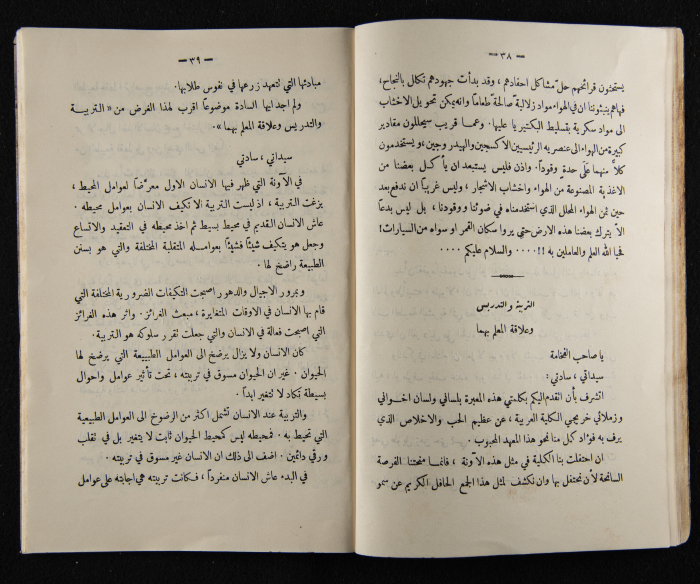 — ٣٨ —
يستحثون قرائحهم حلّ مشاكل احفادهم ، وقد بدأت جهودهم تكال بالنجاح،
فهاهم ينبئوننا ان في الهواء مواد زلالية صالحة طعاماً وانه يمكن تحويل الاخشاب
الى مواد سكرية بتسليط البكتيريا عليها. وعما قريب سيحللون مقادير
كبيرة من الهواء الى عنصريه الرئيسيين الاكسجين والهيدروجين، ويستخدمون
كلاً منهما على حدةٍ وقوداً. واذن فليس يستبعد ان يأكل بعضنا من
الاغذية المصنوعة من الهواء واخشاب الاشجار ، وليس غريباً ان ندفع بعد
حين ثمن الهواء المحلل الذي استخدمناه في ضوئنا ووقودنا ، بل ليس بدعاً
الاّ يترك بعضنا هذه الارض حتى يروا سكان القمر او سواه من السيارات!
فحيا الله العلم والعاملين به !! .... والسلام عليكم ....
التربية والتدريس
وعلاقة المعلم بهما
يا صاحب الفخامة
سيداتي ، سادتي :
اتشرف بأن اتقدم اليكم بكلمتي هذه المعبرة بلساني ولسان اخواني
وزملائي خريجي الكلية العربية ، عن عظيم الحب والاخلاص الذي
يرف به فؤاد كل منا نحو هذا المعهد المحبوب .
ان احتفلت بنا الكلية في مثل هذه الآونة ، فانما منحتنا الفرصة
السانحة لأن نحتفل بها وان نكشف لمثل هذا الجمع الحافل الكريم عن سمو
— ٣٩ —
مبادئها التي تتعهد زرعها في نفوس طلابها.
ولم اجد ايها السادة موضوعاً اقرب لهذا الغرض من « التربية
والتدريس وعلاقة المعلم بهما ».
سيداتي ، سادتي
في الآونة التي ظهر فيها الانسان الاول معرّضاً لعوامل المحيط ،
بزغت التربية ، اذ ليست التربية الا تكيف الانسان بعوامل محيطه .
عاش الانسان القديم في محيط بسيط ثم اخذ محيطه في التعقيد والاتساع
وجعل هو يتكيف شيئاً فشيئاً بعوامله المتقلبة المختلفة والتي هو بسنن
الطبيعة راضخ لها .
وبمرور الاجيال والدهور اصبحت التكيفات الضرورية المختلفة التي
قام بها الانسان في الاوقات المتغايرة ، مبعث الغرائز . واثر هذه الغرائز
التي اصبحت فعالة في الانسان والتي جعلت تقرر سلوكه هو التربية.
كان الانسان ولا يزال يرضخ الى العوامل الطبيعة التي يرضخ لها
الحيوان . غير ان الحيوان مسوق في تربيته ، تحت تأثير عوامل واحوال
بسيطة تكاد لا تتغير ابداً .
والتربية عند الانسان تشمل اكثر من الرضوخ الى العوامل الطبيعية
التي تحيط به . فمحيطه ليس كمحيط الحيوان ثابت لا يتغير بل في تقلب
ورقي دائمين . اضف الى ذلك ان الانسان غير مسوق في تربيته .
في البدء عاش الانسان منفرداً ، فكانت تربيته هي اجابته على عوامل